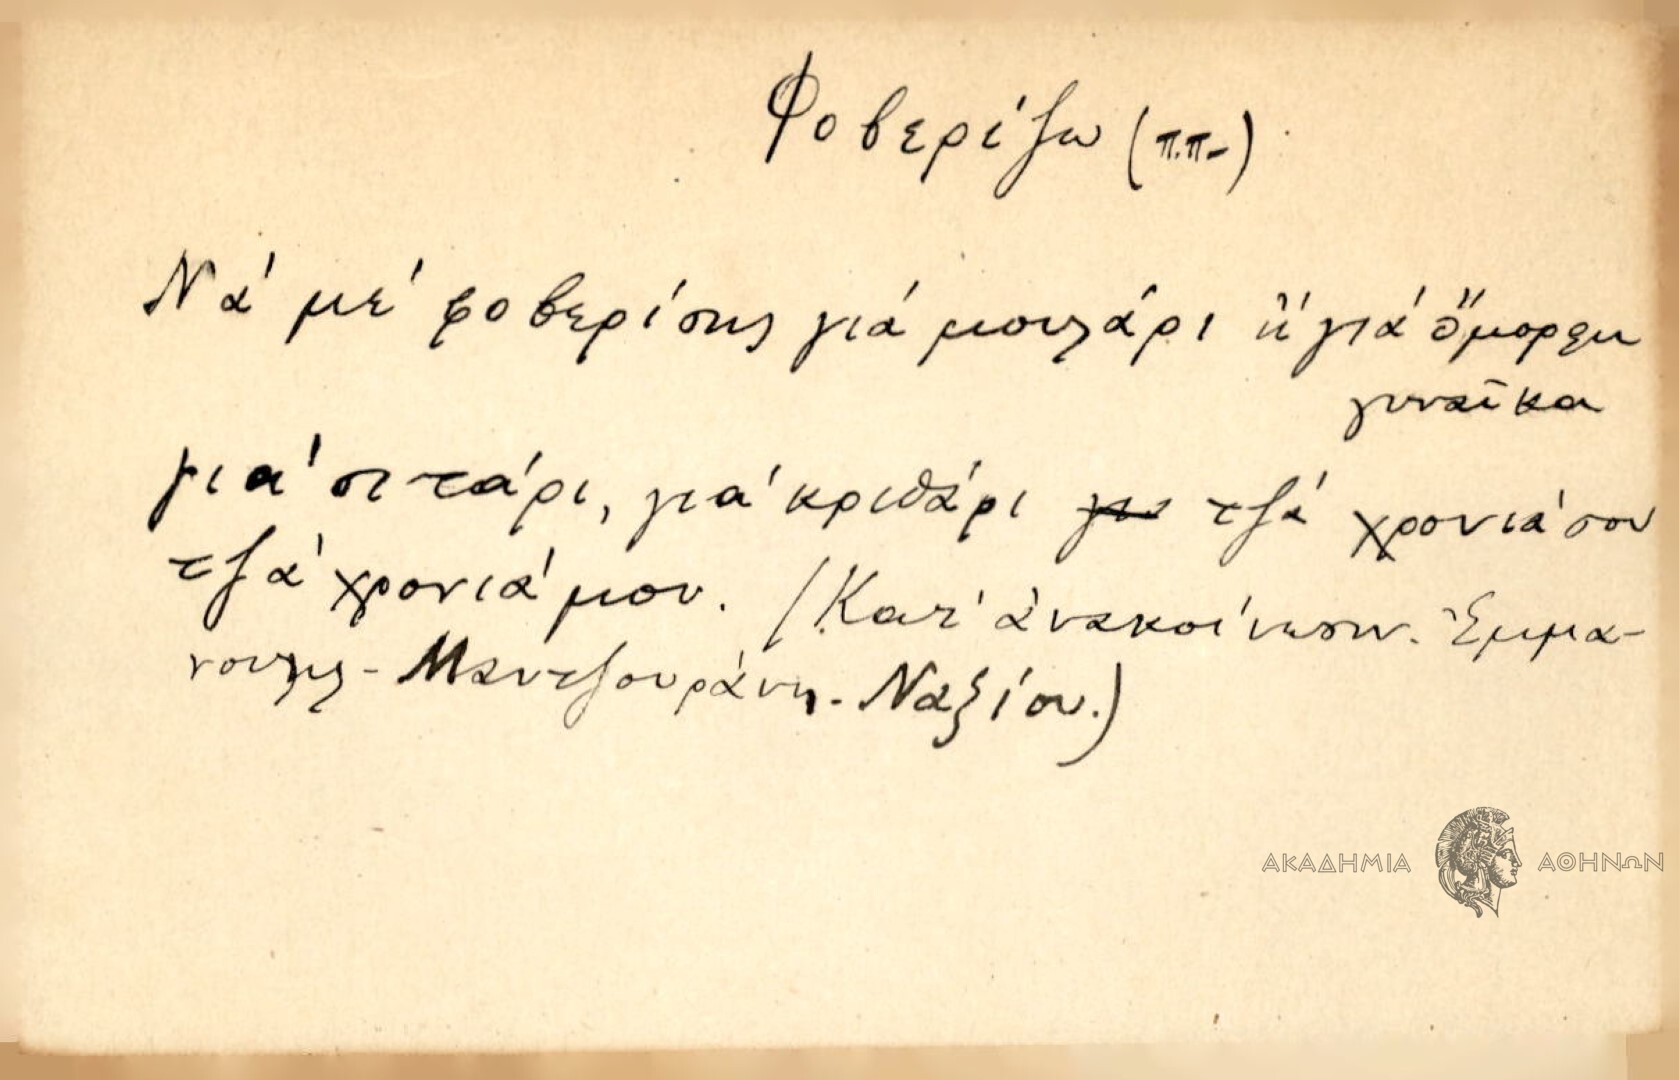 Φοβερίζω (π.π.)
Νά μέ φοβερίσης γιά μουλάρι ἤ γιά ὄμορφη
γυναῖκα
γιά σιτάρι, γιά κριθάρι τζά χρονιά σου
τζά χρονιά μου. (Κατ' ἀνακοίνωσιν. Ἐμμα-
νουὴλ - Μαντζουράνη - Ναξίου.)
ΑΚΑΔΗΜΙΑ ΑΘΗΝΩΝ